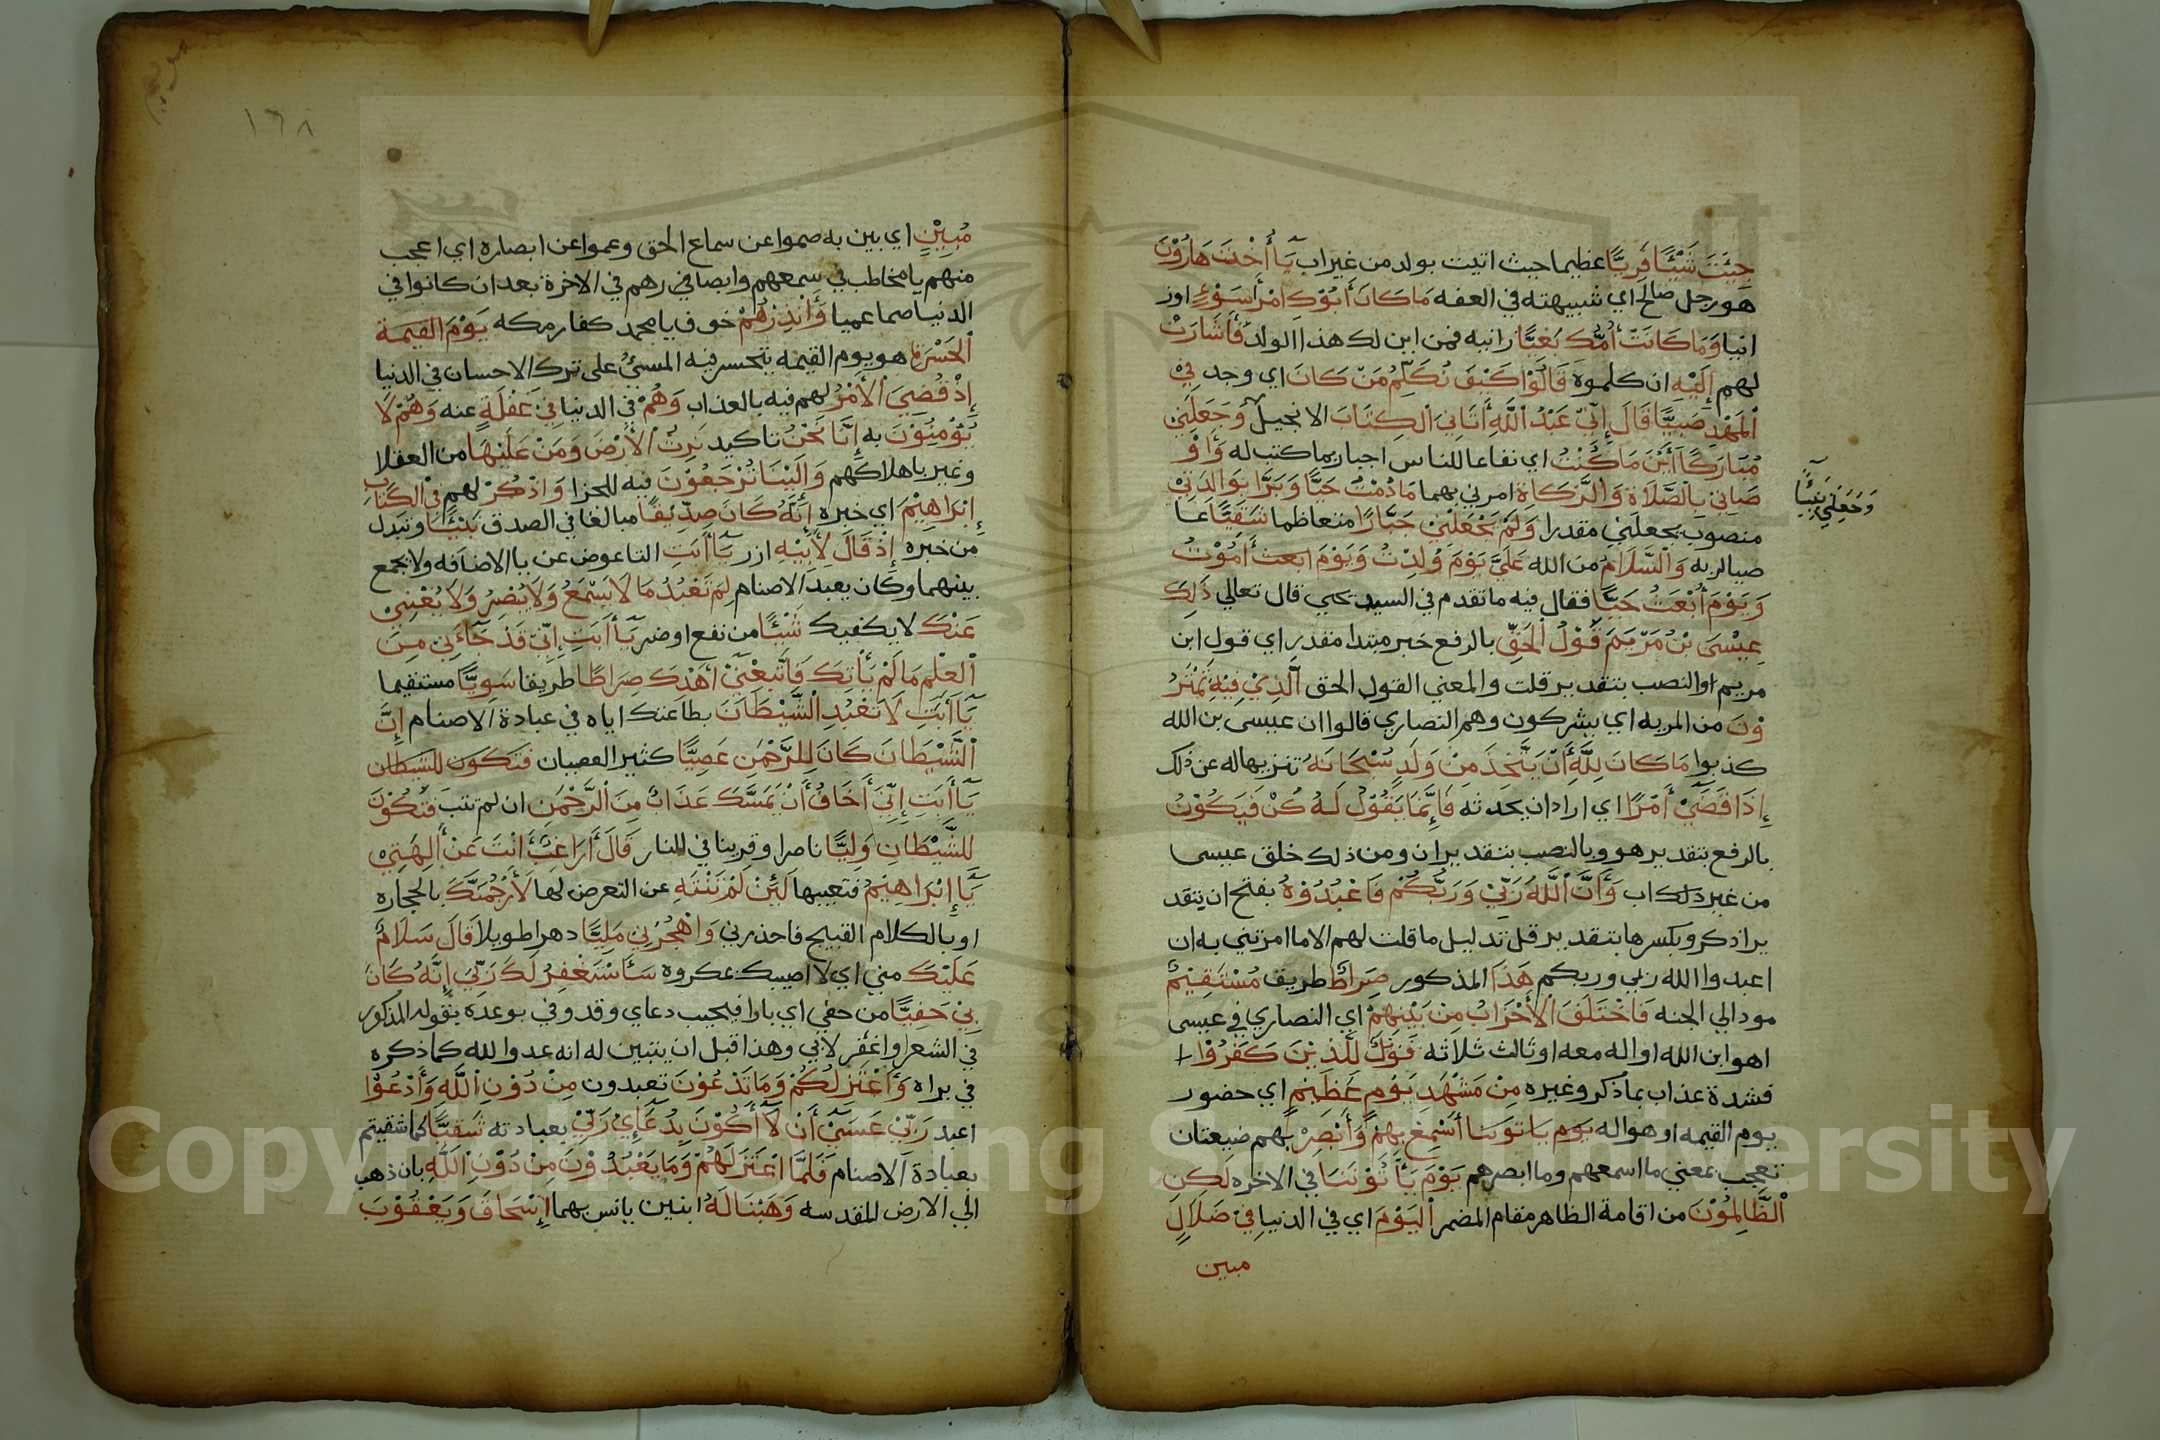 جِئْتَ شَيْئًا فَرِيًّا عظيما حيث اتيت بولد من غير اب يَا أُخْتَ هَارُوْنَ
هو رجل صالح اي شبيهته في العفه مَا كَانَ أَبُوْكِ امْرَأَ سَوْءٍ اوز
انيا وَمَا كَانَتْ أُمُّكِ بَغِيًّا زانيه فمن اين لك هذا الولد فَأَشَارَتْ
لهم إِلَيْهِ ان كلموة قَالُوْا كَيْفَ نُكَلِّمُ مَنْ كَانَ اي وجد فِيْ
الْمَهْدِ صَبِيًّا قَالَ إِنِّيْ عَبْدُ اللَّهِ أَتَانِيَ الْكِتَابَ الانجيل وَجَعَلَنِيْ
وَجَعَلَنِيْ نَبِيًّا
مُبَارَكًا أَيْنَ مَا كُنْتُ اي نفاعا للناس اخبار بما كتب له وَأَوْ
صَانِيْ بِالصَّلَاةِ وَالزَّكَاةِ امرني بهما مَا دُمْتُ حَيًّا وَبَرًّا بِوَالِدَتِيْ
منصوب بجعلني مقدرا وَلَمْ يَجْعَلْنِيْ جَبَّارًا متعاظما شَقِيًّا عا
صيا لربه وَالسَّلَامُ من الله عَلَيَّ يَوْمَ وُلِدْتُ وَيَوْمَ ابعث أَمُوْتُ
وَيَوْمَ أُبْعَثُ حَيًّا فقال فيه ما تقدم في السيد يحيي قال تعالي ذَلِكَ
عِيْسَى بْنُ مَرْيَمَ قَوْلُ الْحَقِّ بالرفع خبر مبتدا مقدر اي قول ابن
مريم او النصب بتقدير قلت والمعني القول الحق الَّذِيْ فِيْهِ يَمْتَرُ
وْنَ من المريه اي يشركون وهم النصاري قالوا ان عيسى بن الله
كذبوا مَا كَانَ لِلَّهِ أَنْ يَتَّخِذَ مِنْ وَلَدٍ سُبْحَانَهُ تنزيها له عن ذلك
إِذَا قَضَىْ أَمْرًا اي اراد ان يحدثه فَإِنَّمَا يَقُوْلُ لَهُ كُنْ فَيَكُوْنُ
بالرفع بتقدير هو وبالنصب بتقدير ان ومن ذلك خلق عيسى
من غير ذلك اب وَأَنَّ اللَّهَ رَبِّيْ وَرَبُّكُمْ فَاعْبُدُوْهُ بفتح ان بتقد
ير اذكر وبكسرها بتقدير قل بدليل ما قلت لهم الا ما امرتني به ان
اعبدوا الله ربي وربكم هَذَا المذكور صِرَاطٌ طريق مُسْتَقِيْمٌ
مود الي الجنه فَاخْتَلَفَ الْأَحْزَابُ مِنْ بَيْنِهِمْ أي النصاري في عيسى
اهو ابن الله او اله معه او ثالث ثلاثه فَوَيْلٌ لِلَّذِيْنَ كَفَرُوْا
فشدة عذاب بما ذكر وغيره مِنْ مَشْهَدِ يَوْمٍ عَظِيْمٍ اي حضور
يوم القيمه او هواله يوم ياتوننا أَسْمِعْ بِهِمْ وَأَبْصِرْ بهم صيغتان
تعجب بمعني ما اسمعهم وما ابصرهم يَوْمَ يَأْتُوْنَنَا في الاخره لَكِنِ
الظَّالِمُوْنَ من اقامة الظاهر مقام المضمر الْيَوْمَ اي في الدنيا فِيْ ضَلَالٍ
مبين
مريم
١٦٨
مُبِيْنٍ اي بين به صموا عن سماع الحق وعموا عن ابصاره اي اعجب
منهم يا مخاطب في سمعهم وابصارهم في الاخرة بعد ان كانوا في
الدنيا صما عميا وَأَنْذِرْهُمْ خوف يا محمد كفار مكه يَوْمَ القيمة
الْحَسْرَةِ هو يوم القيمه يتحسر فيه المسئ على ترك الاحسان في الدنيا
إِذْ قُضِيَ الْأَمْرُ لهم فيه بالعذاب وَهُمْ في الدنيا فِيْ غَفْلَةٍ عنه وَهُمْ لَا
يُؤْمِنُوْنَ به إِنَّا نَحْنُ تاكيد نَرِثُ الْأَرْضَ وَمَنْ عَلَيْهَا من العقلا
وغير باهلاكهم وَإِلَيْنَا تُرْجَعُوْنَ فيه للجزا وَاذْكُرْ لهم فِي الْكِتَابِ
إِبْرَاهِيْمَ اي خبره إِنَّهُ كَانَ صِدِّيْقًا مبالغا في الصدق نَبِيًّا ويبدل
من خبره إِذْ قَالَ لِأَبِيْهِ ازر يَا أَبَتِ التا عوض عن يا الاضافه ولا يجمع
بينهما وكان يعبد الاصنام لِمَ تَعْبُدُ مَا لَا يَسْمَعُ وَلَا يُبْصِرُ وَلَا يُغْنِيْ
عَنْكَ لا يكفيك شَيْئًا من نفع او ضر يَا أَبَتِ إِنِّيْ قَدْ جَاءَنِيْ مِنَ
الْعِلْمِ مَا لَمْ يَأْتِكَ فَاتَّبِعْنِيْ أَهْدِكَ صِرَاطًا طريقا سَوِيًّا مستقيما
يَا أَبَتِ لَا تَعْبُدِ الشَّيْطَانَ بطاعتك اياه في عبادة الاصنام إِنَّ
الشَّيْطَانَ كَانَ لِلرَّحْمَنِ عَصِيًّا كثير العصيان فَتَكُوْنَ لِلشَّيْطَانِ
يَا أَبَتِ إِنِّيْ أَخَافُ أَنْ يَمَسَّكَ عَذَابٌ مِنَ الرَّحْمَنِ ان لم تتب فَتَكُوْنَ
لِلشَّيْطَانِ وَلِيًّا ناصرا وقرينا في للنار قَالَ أَرَاغِبٌ أَنْتَ عَنْ أَلِهَتِيْ
يَا إِبْرَاهِيْمُ فتعيبها لَئِنْ لَمْ تَنْتَهِ عن التعرض لها لَأَرْجُمَنَّكَ بالحجاره
او بالكلام القبيح فاحذرني وَاهْجُرْنِيْ مَلِيًّا دهرا طويلا قَالَ سَلَامٌ
عَلَيْكَ مني اي لا اصيبك بمكروه سَأَسْتَغْفِرُ لَكَ رَبِّيْ إِنَّهُ كَانَ
بِيْ حَفِيًّا من حفي اي بارا فيجيب دعاي وقد وفي بوعده بقوله المذكور
في الشعرا واغفر لابي وهذا قبل ان يتبين له انه عدو الله كما ذكره
في براه وَأَعْتَزِلُكُمْ وَمَا تَدْعُوْنَ تعبدون مِنْ دُوْنِ اللَّهِ وَأَدْعُوْا
اعبد رَبِّيْ عَسَىْ أَنْ لَا أَكُوْنَ بِدُعَاءِ رَبِّيْ بعبادته شَقِيًّا كما شقيتم
بعبادة الاصنام فَلَمَّا اعْتَزَلَهُمْ وَمَا يَعْبُدُوْنَ مِنْ دُوْنِ اللَّهِ بان ذهب
الي الارض المقدسه وَهَبْنَا لَهُ ابنين يانس بهما إِسْحَاقَ وَيَعْقُوْبَ
Copyright © King Saud University
1957